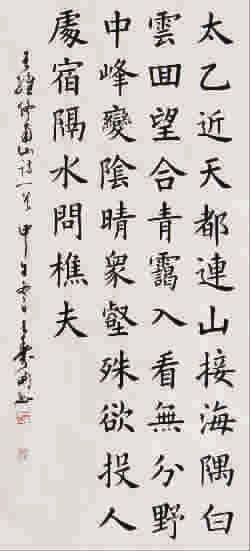 太乙近天都連山接海隅白
雲囬望合青靄入看無分野
中峰變陰晴衆壑殊欲投人
處宿隔水問樵夫
王維終南山詩一首甲午